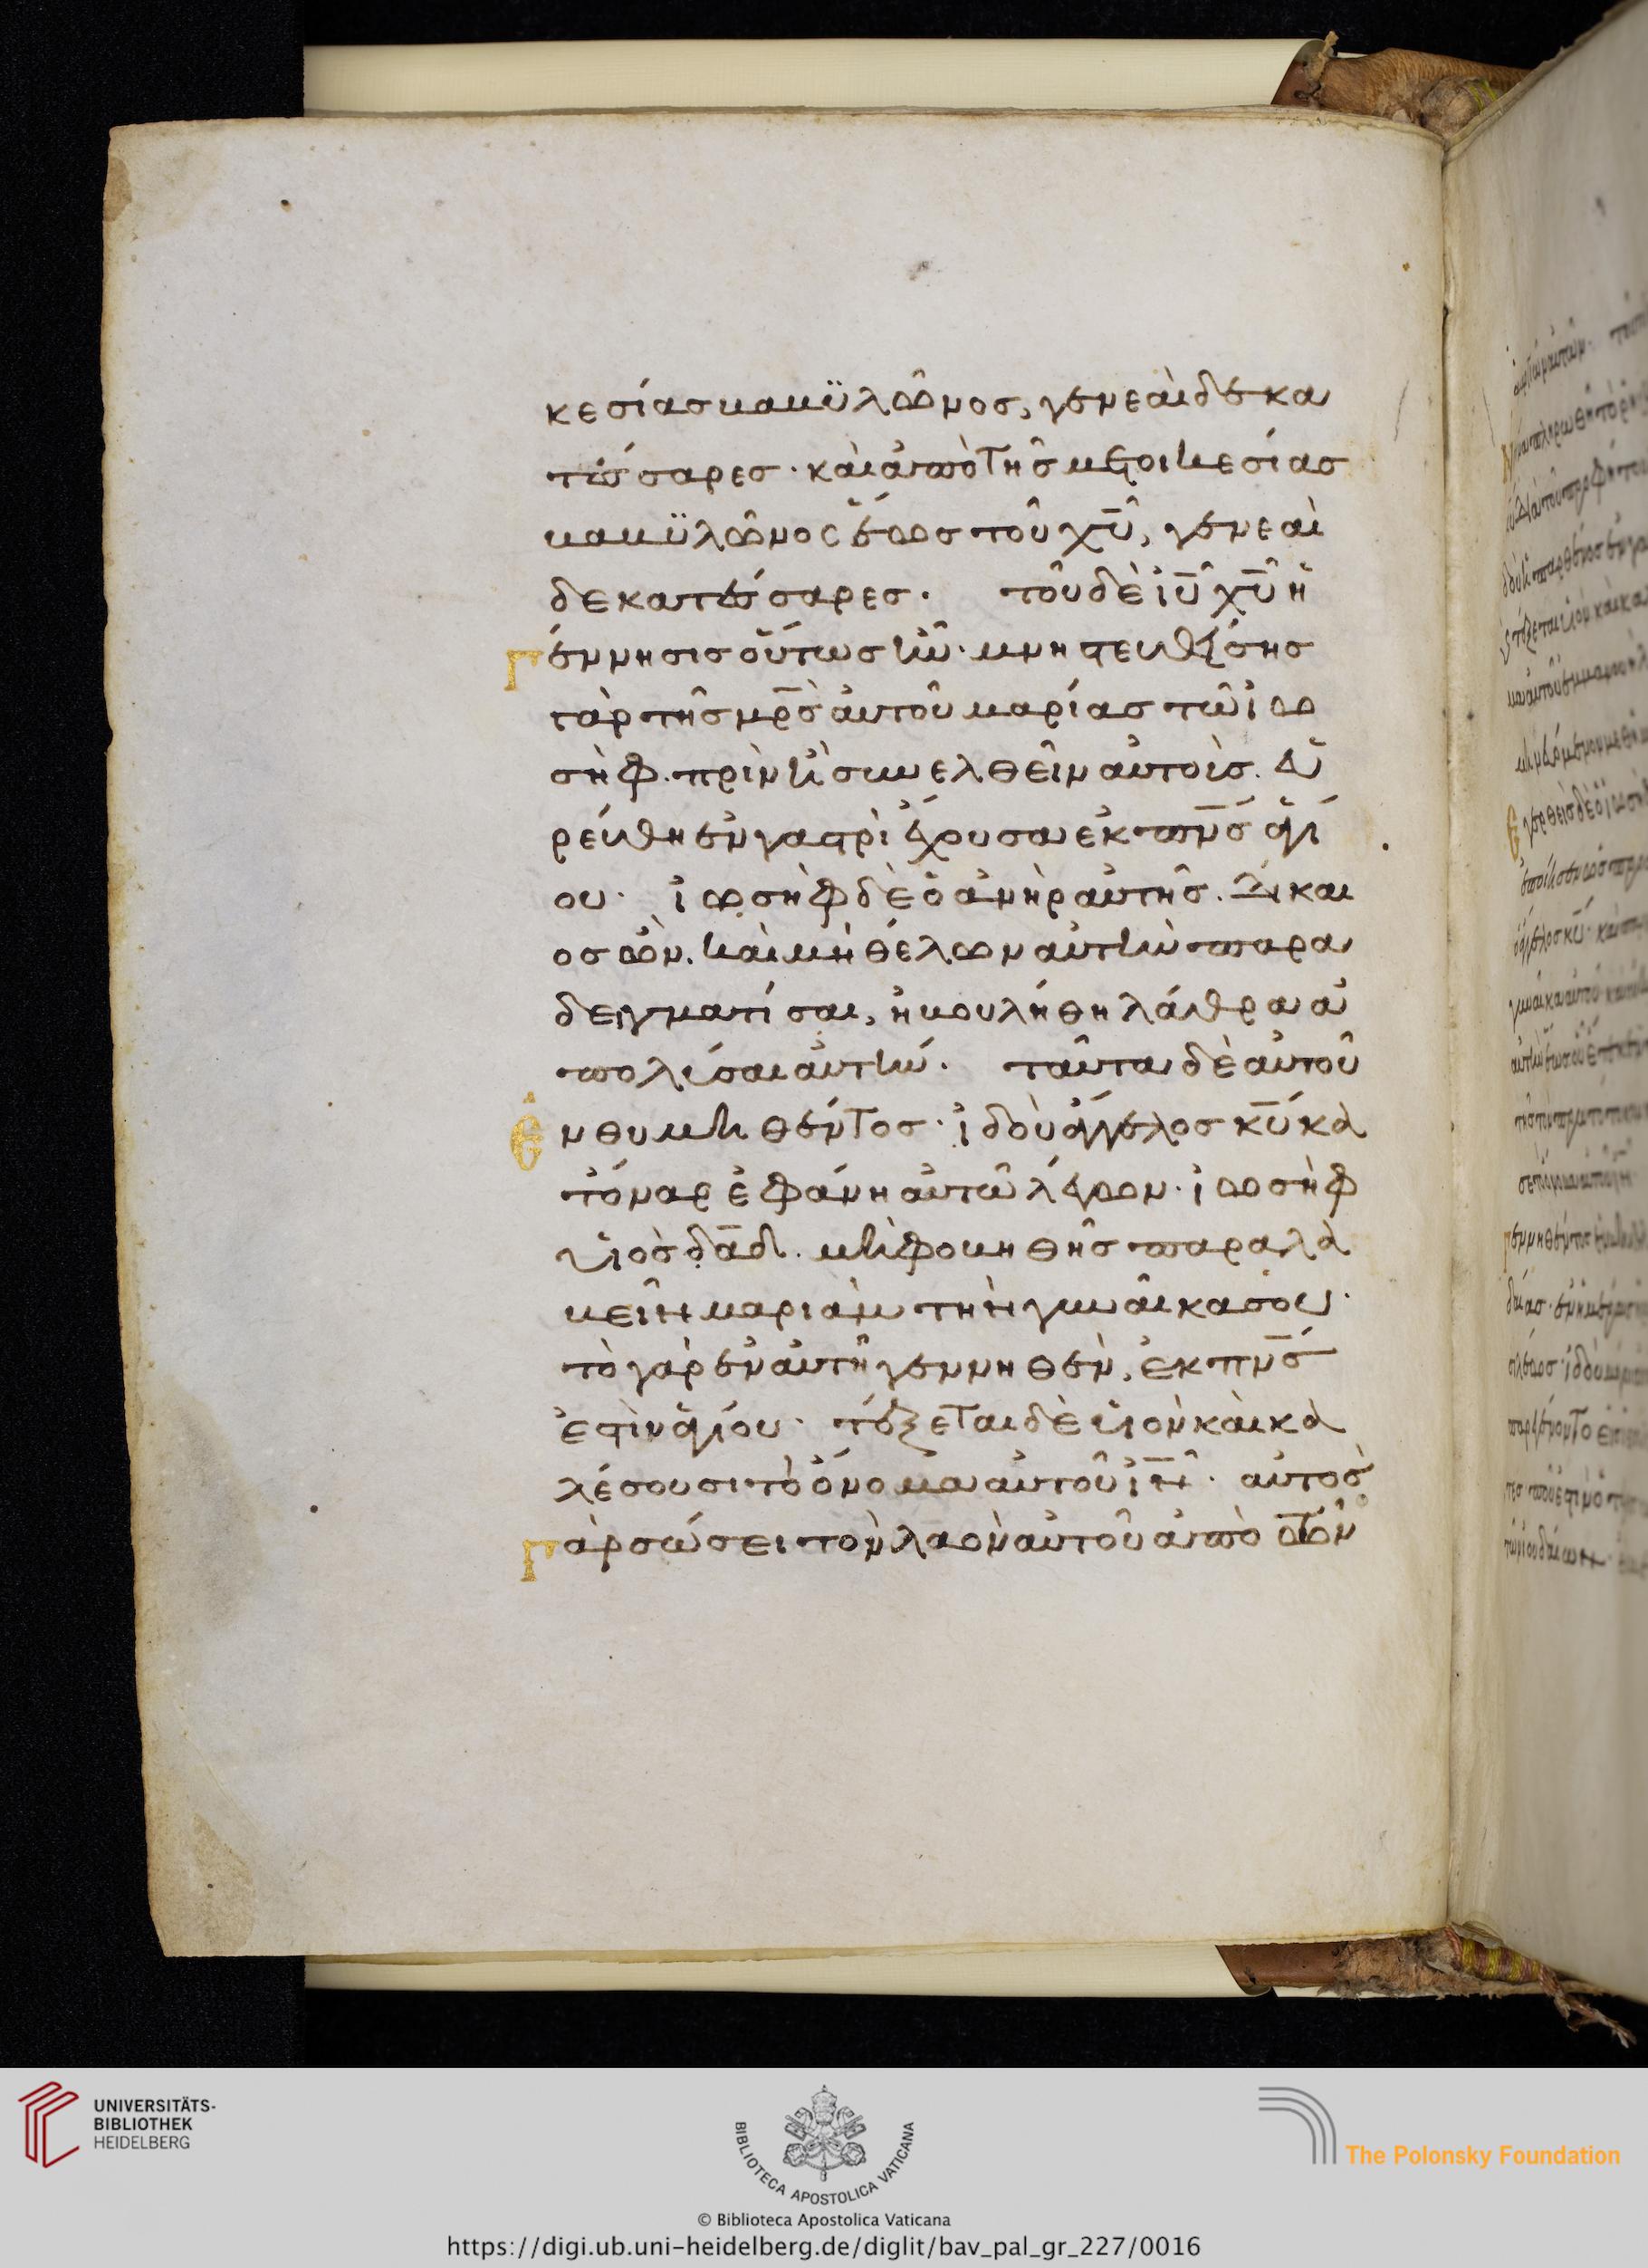 κεσίας βαβυλῶνος, γενεαὶ δέκα
τέσσαρες · καὶ ἀπὸ τῆς μετοικεσίας
βαβυλῶνος ἕως τοῦ χῦ, γενεαὶ
δεκατέσσαρες. τοῦ δὲ ἰῦ χῦ ἡ
γέννησις οὕτως ἦν · μνηστευθείσης
γὰρ τῆς μρ̅ς αὐτοῦ μαρίας τῶ ἰω
σὴφ. πρὶν ἢ συνελθεῖν αὐτοὺς. εὑ
ρέθη ἐν γαστρὶ ἔχουσα ἐκ πν̅ς ἁγί
ου · ἰωσὴφ δὲ ὁ ἀνὴρ αὐτῆς. δίκαι
ος ὢν. καὶ μὴ θέλων αὐτὴν παρα
δειγματίσαι, ἠβουλήθη λάθρα ἀ
πολύσαι αὐτήν. ταῦτα δὲ αὐτοῦ
ἐνθυμηθέντος · ἰδοὺ ἄγγελος κ̅υ κα
τ' ὄναρ ἐφάνη αὐτῶ λέγων · ἰωσὴφ
υἱὸς δᾱδ. μὴ φοβηθῆς παραλα
βεῖν μαριὰμ τὴν γυναῖκα σου ·
τὸ γὰρ ἐν αὐτῆ γεννηθὲν, ἐκ πν̅ς
ἐστὶν ἁγίου · τέξεται δὲ υἱὸν καὶ κα
λέσουσι τὸ ὄνομα αὐτοῦ ἰ̅ν · αὐτὸς
γὰρ σώσει τὸν λαὸν αὐτοῦ ἀπὸ τῶν
UNIVERSITÄTS-
BIBLIOTHEK
HEIDELBERG
BIBLIOTECA APOSTOLICA VATICANA
The Polonsky Foundation
© Biblioteca Apostolica Vaticana
https://digi.ub.uni-heidelberg.de/diglit/bav_pal_gr_227/0016